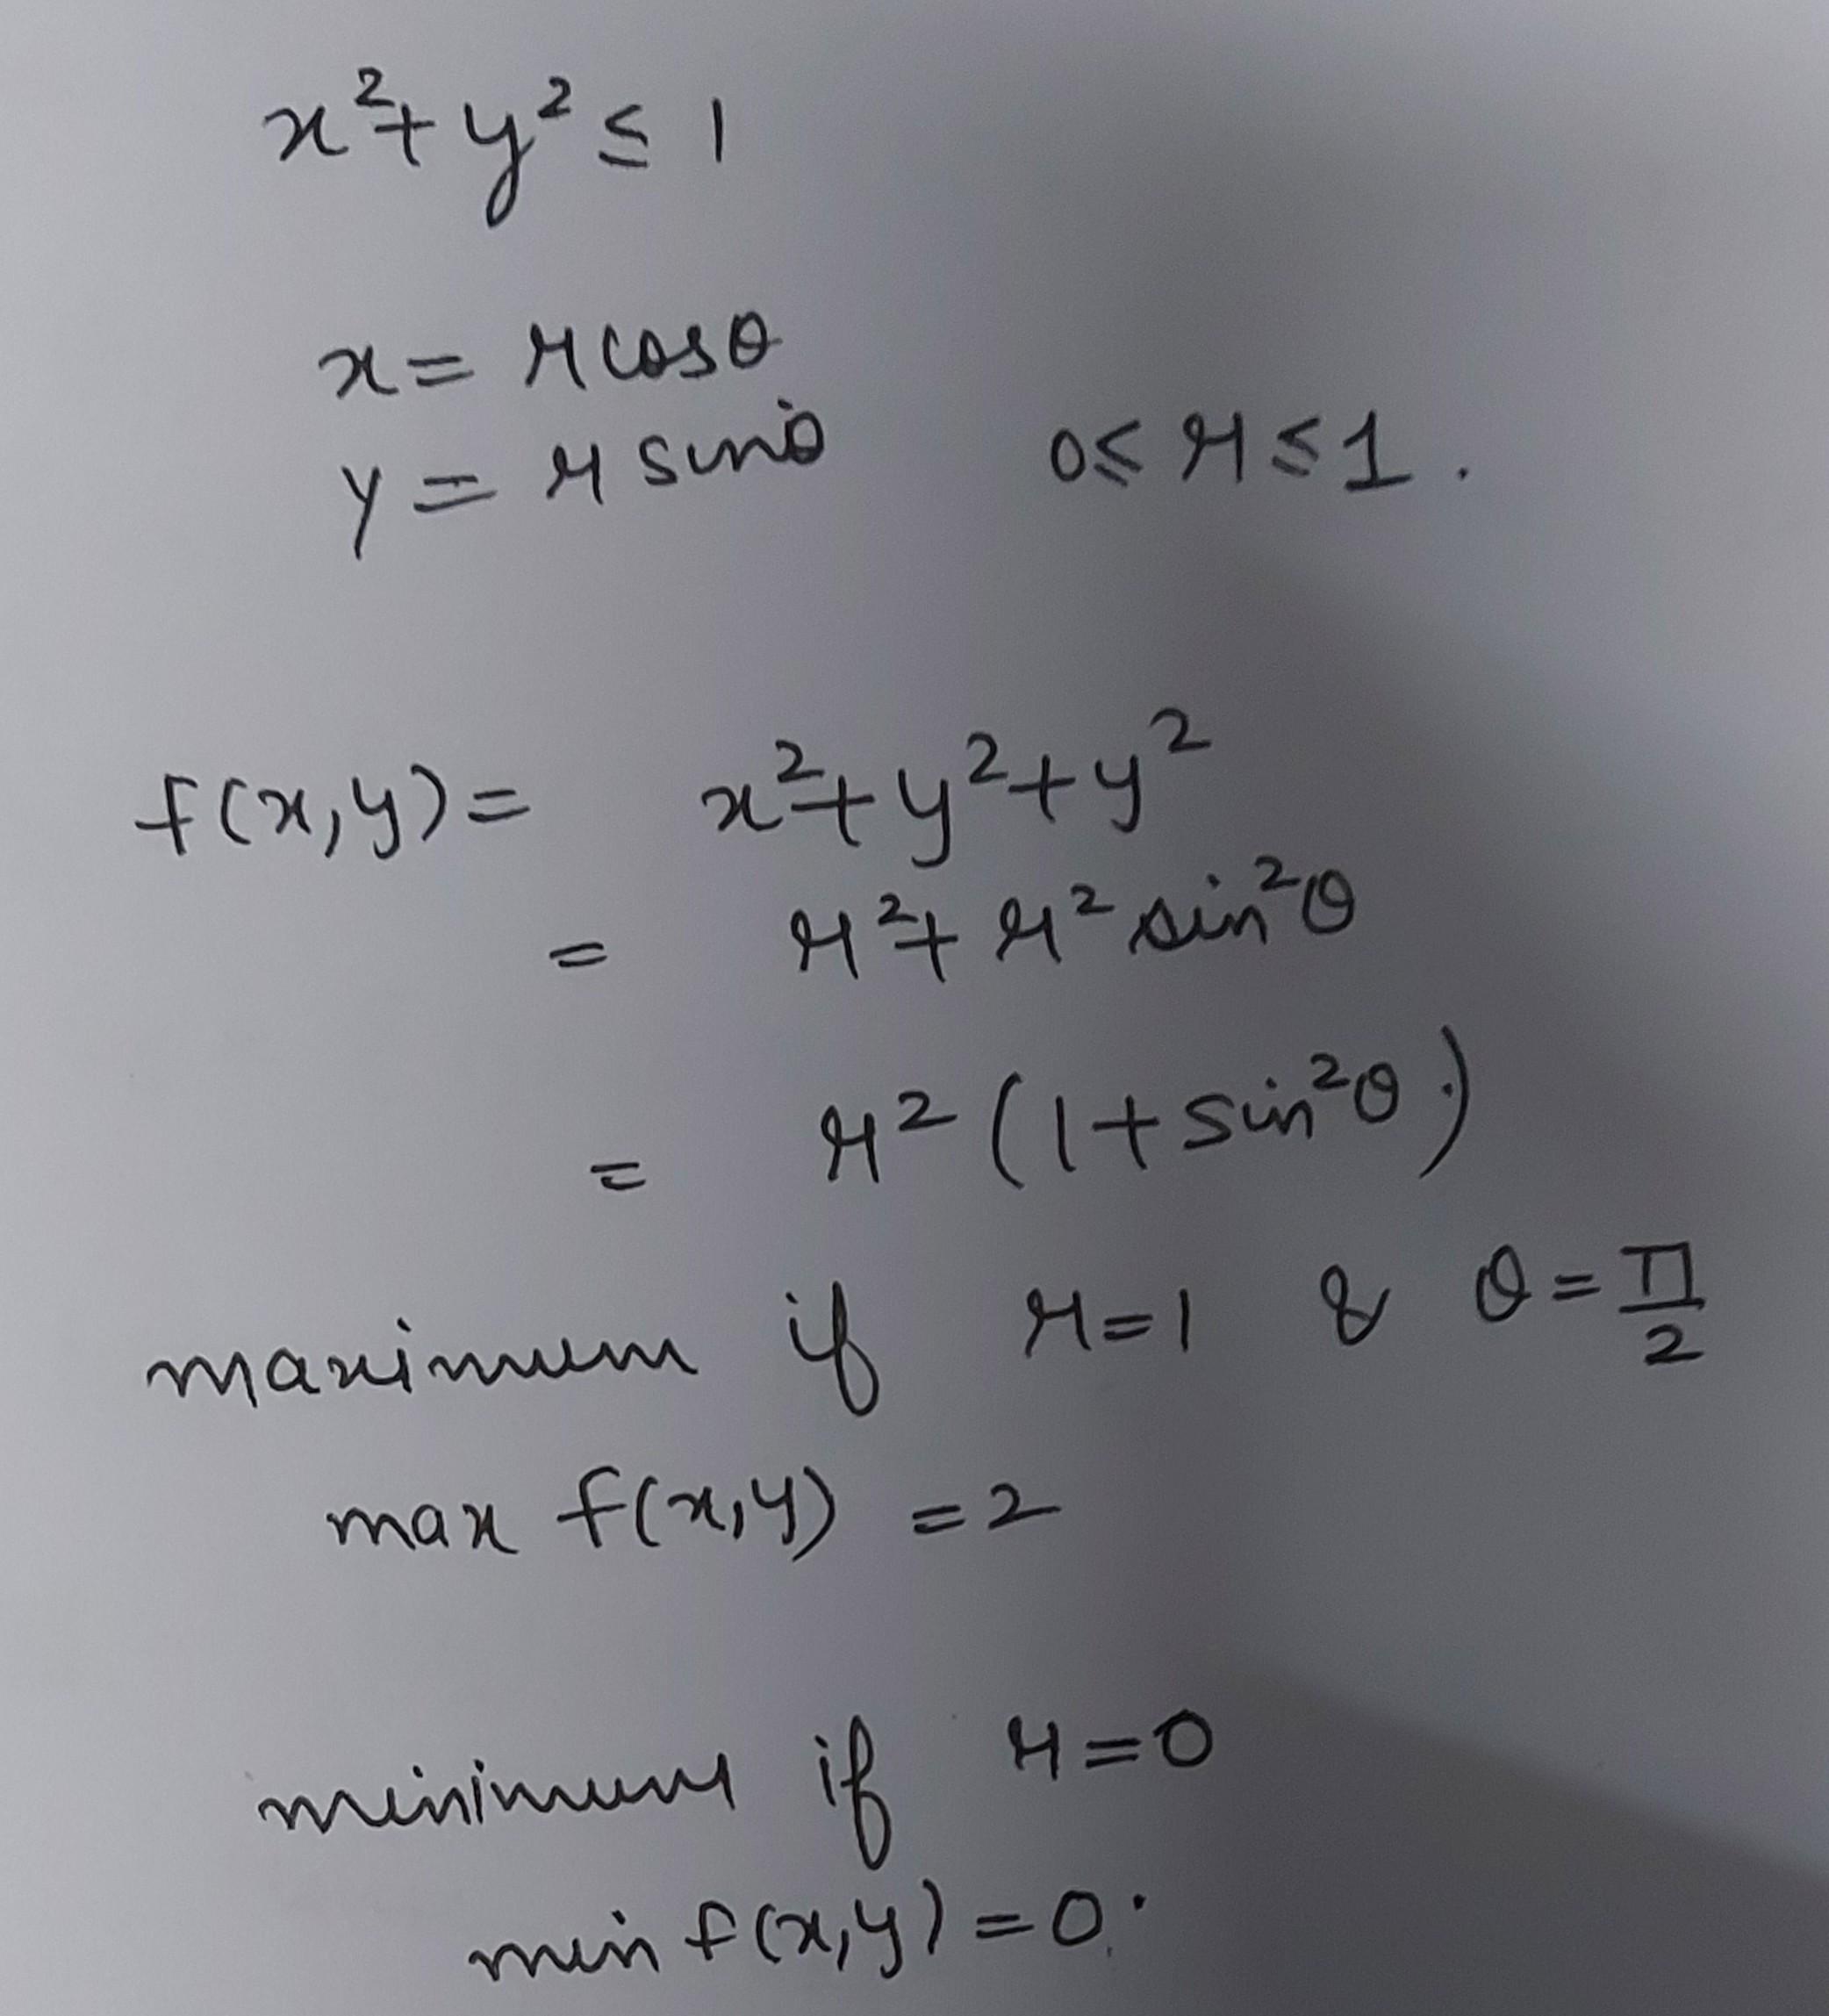 x²+y² ≤ 1
x = r cosθ
y = r sinθ 0 ≤ r ≤ 1.
f(x,y) = x²+y²+y²
= r²+r² sin²θ
= r² (1+sin²θ)
maximum if r=1 & θ=π/2
max f(x,y) = 2
minimum if r=0
min f(x,y) = 0.